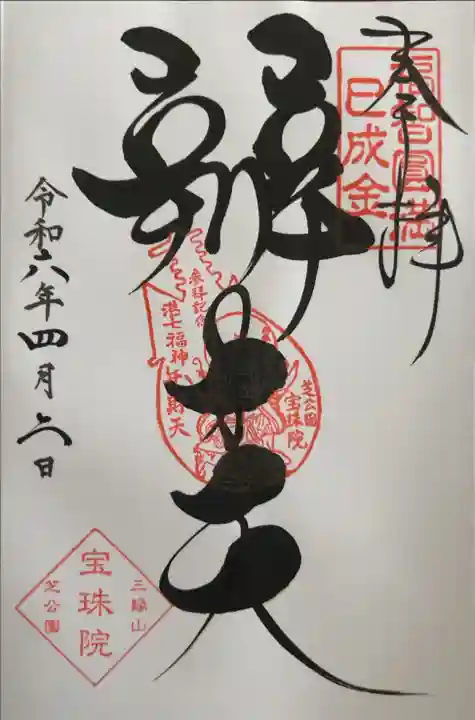 奉拝
福智圓満
巳成金
辯才天
参拝記念
港七福神弁財天
芝公園
宝珠院
令和六年四月六日
三縁山
宝珠院
芝公園